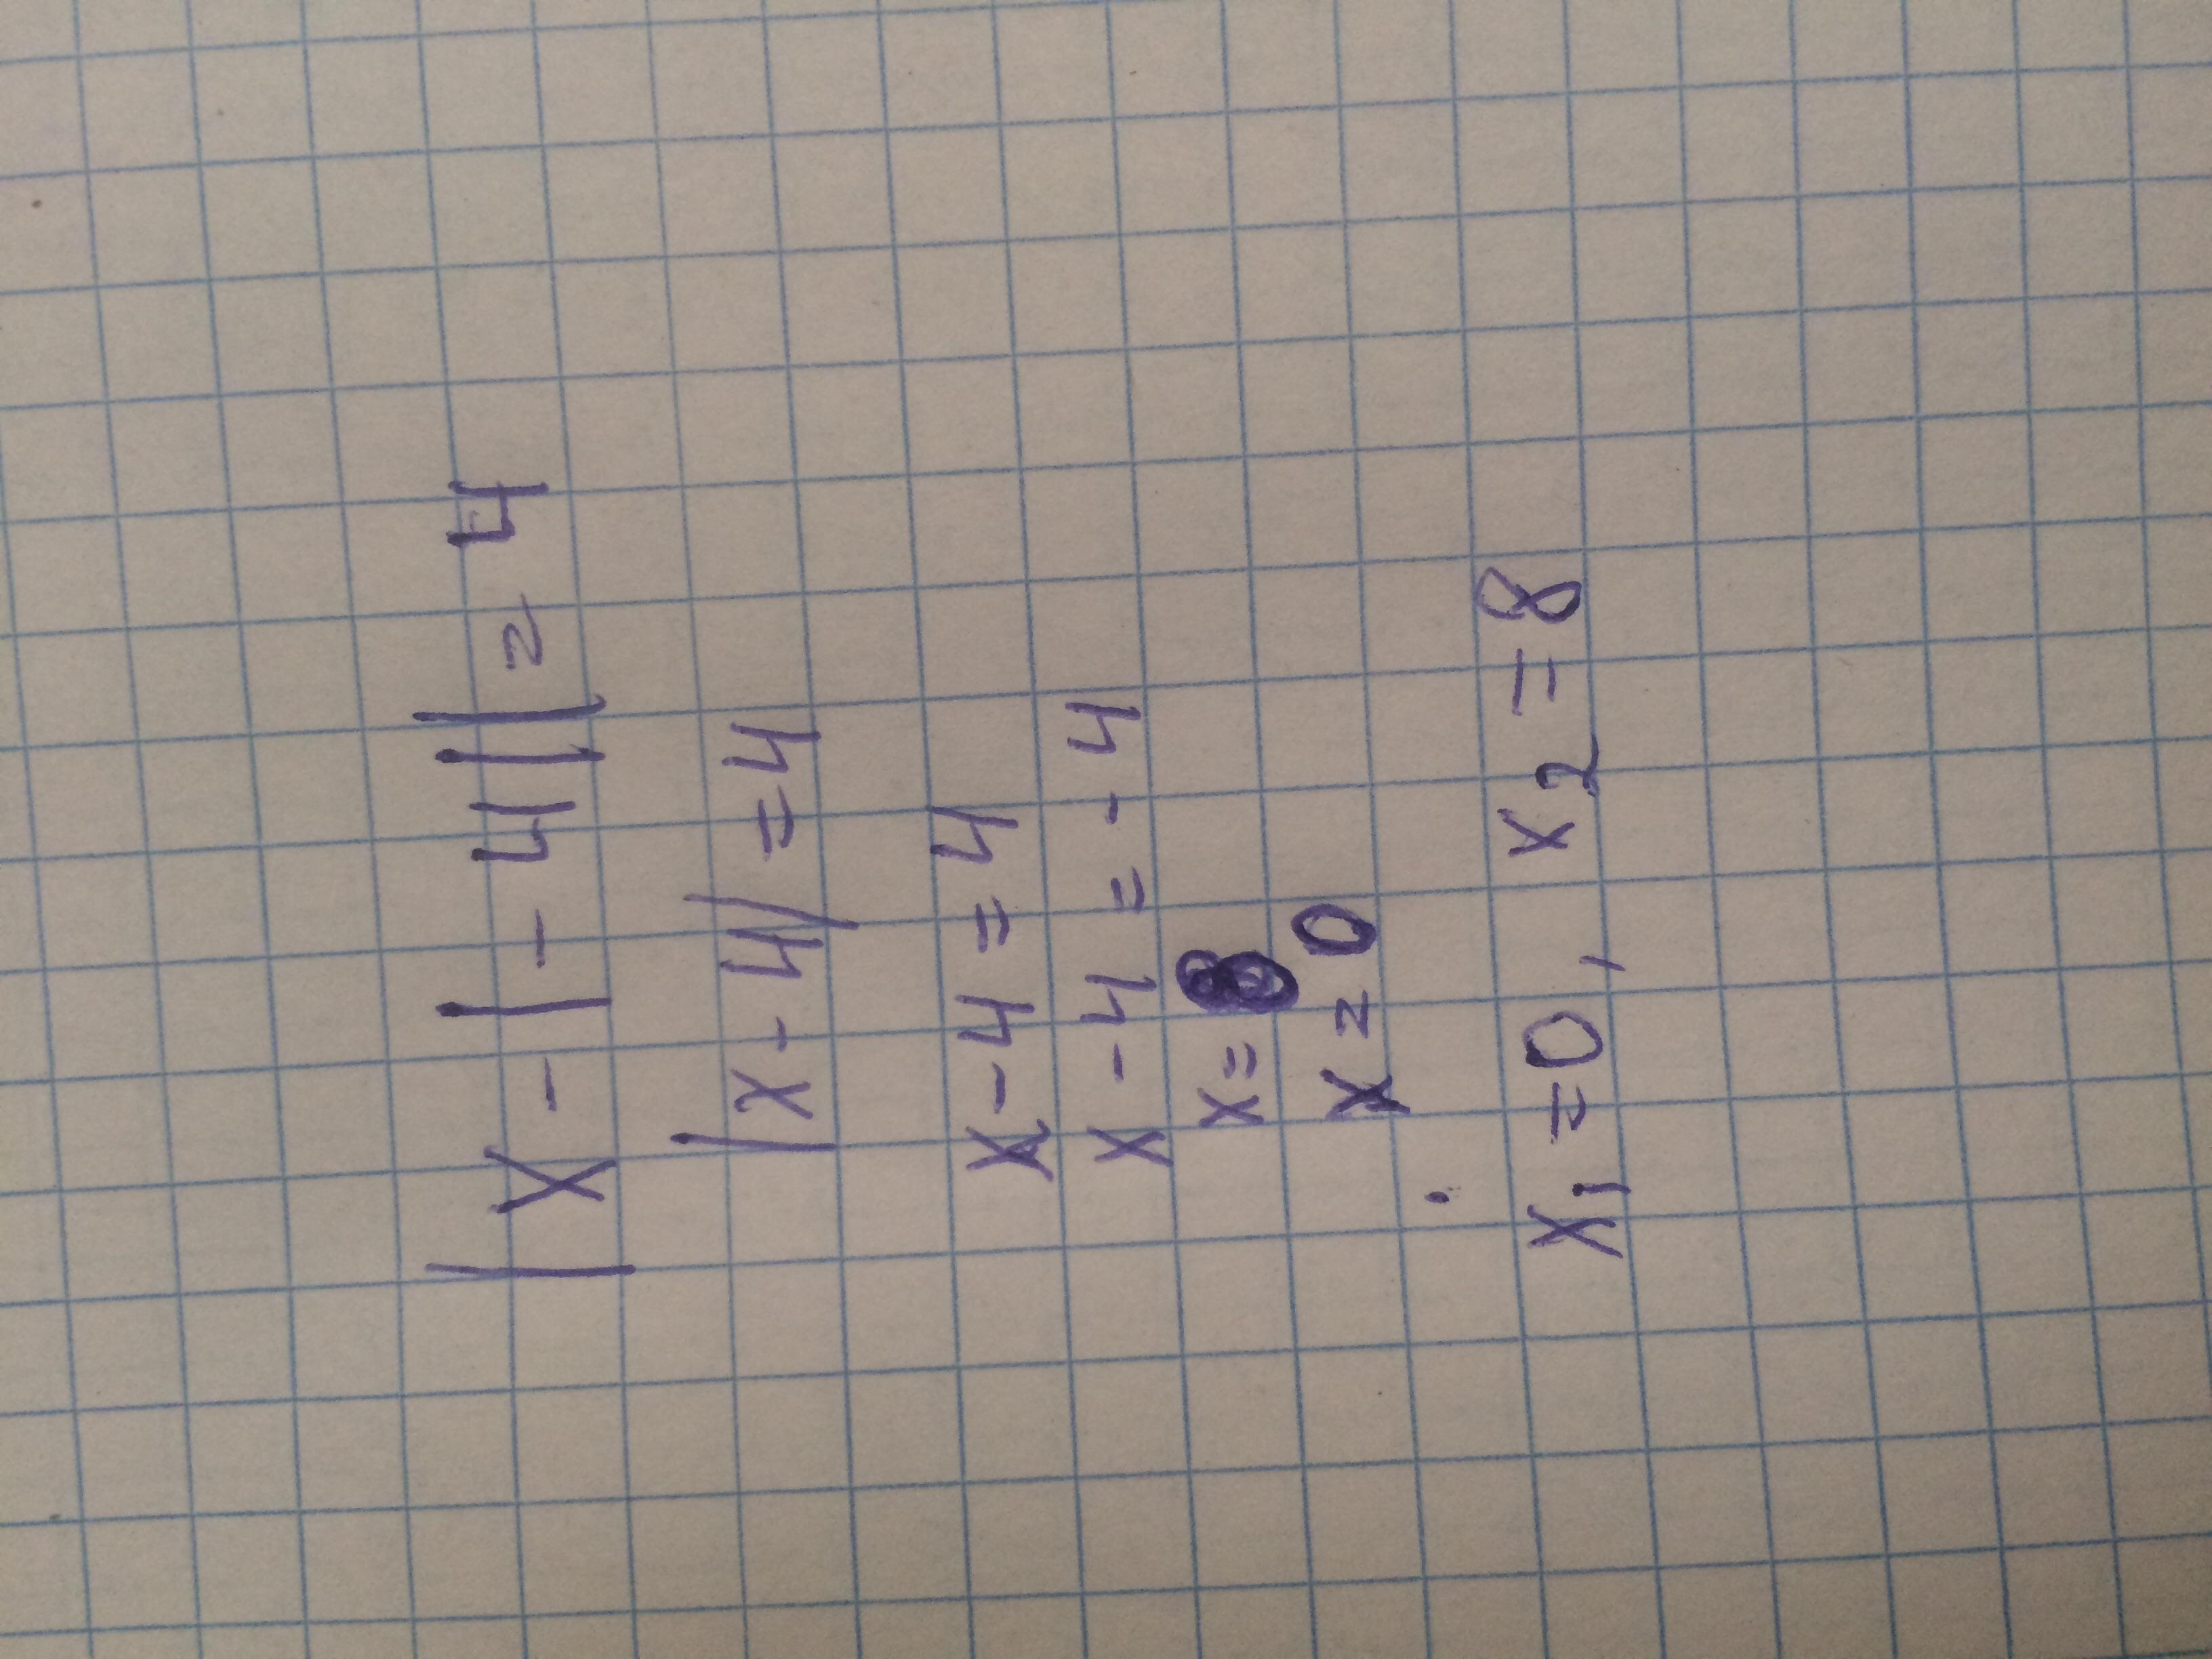 |x-|-4||=4
|x-4|=4
x-4=4
x-4=-4
x=8
x=0
x₁=0, x₂=8